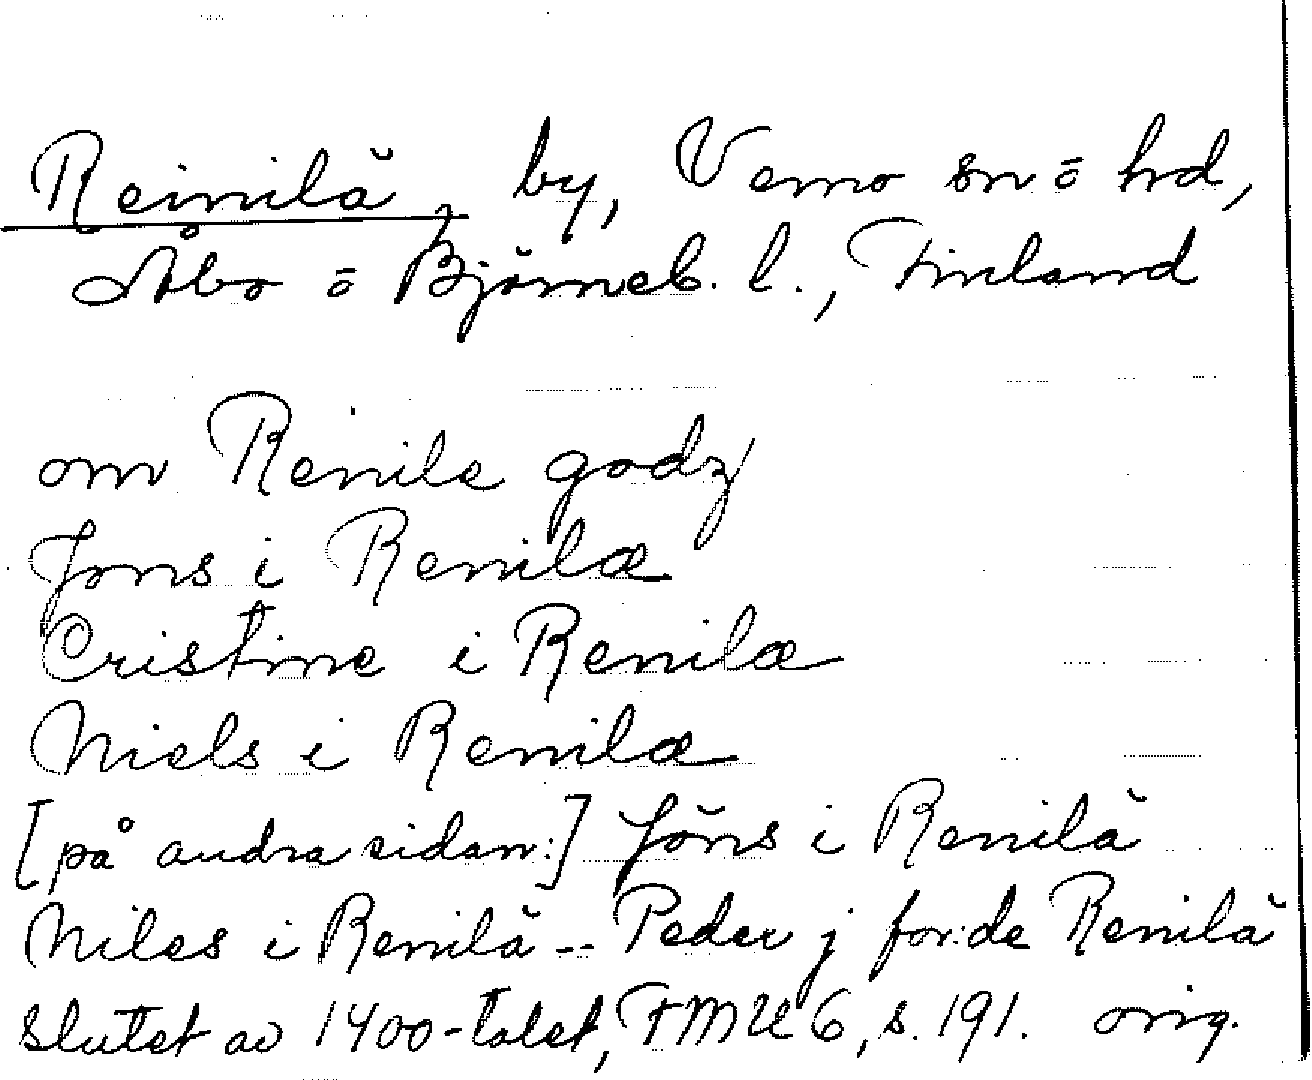 Reinilä, by, Vemo sn o hd,
Åbo o Björneb. l., Finland
om Renile godz
Jons i Renilæ
Cristine i Renilæ
Niels i Renilæ
[på andra sidan:] Jöns i Renilä
Niles i Renilä -- Peder j for:de Renilä
slutet av 1400-talet, FMU 6, s. 191. orig.